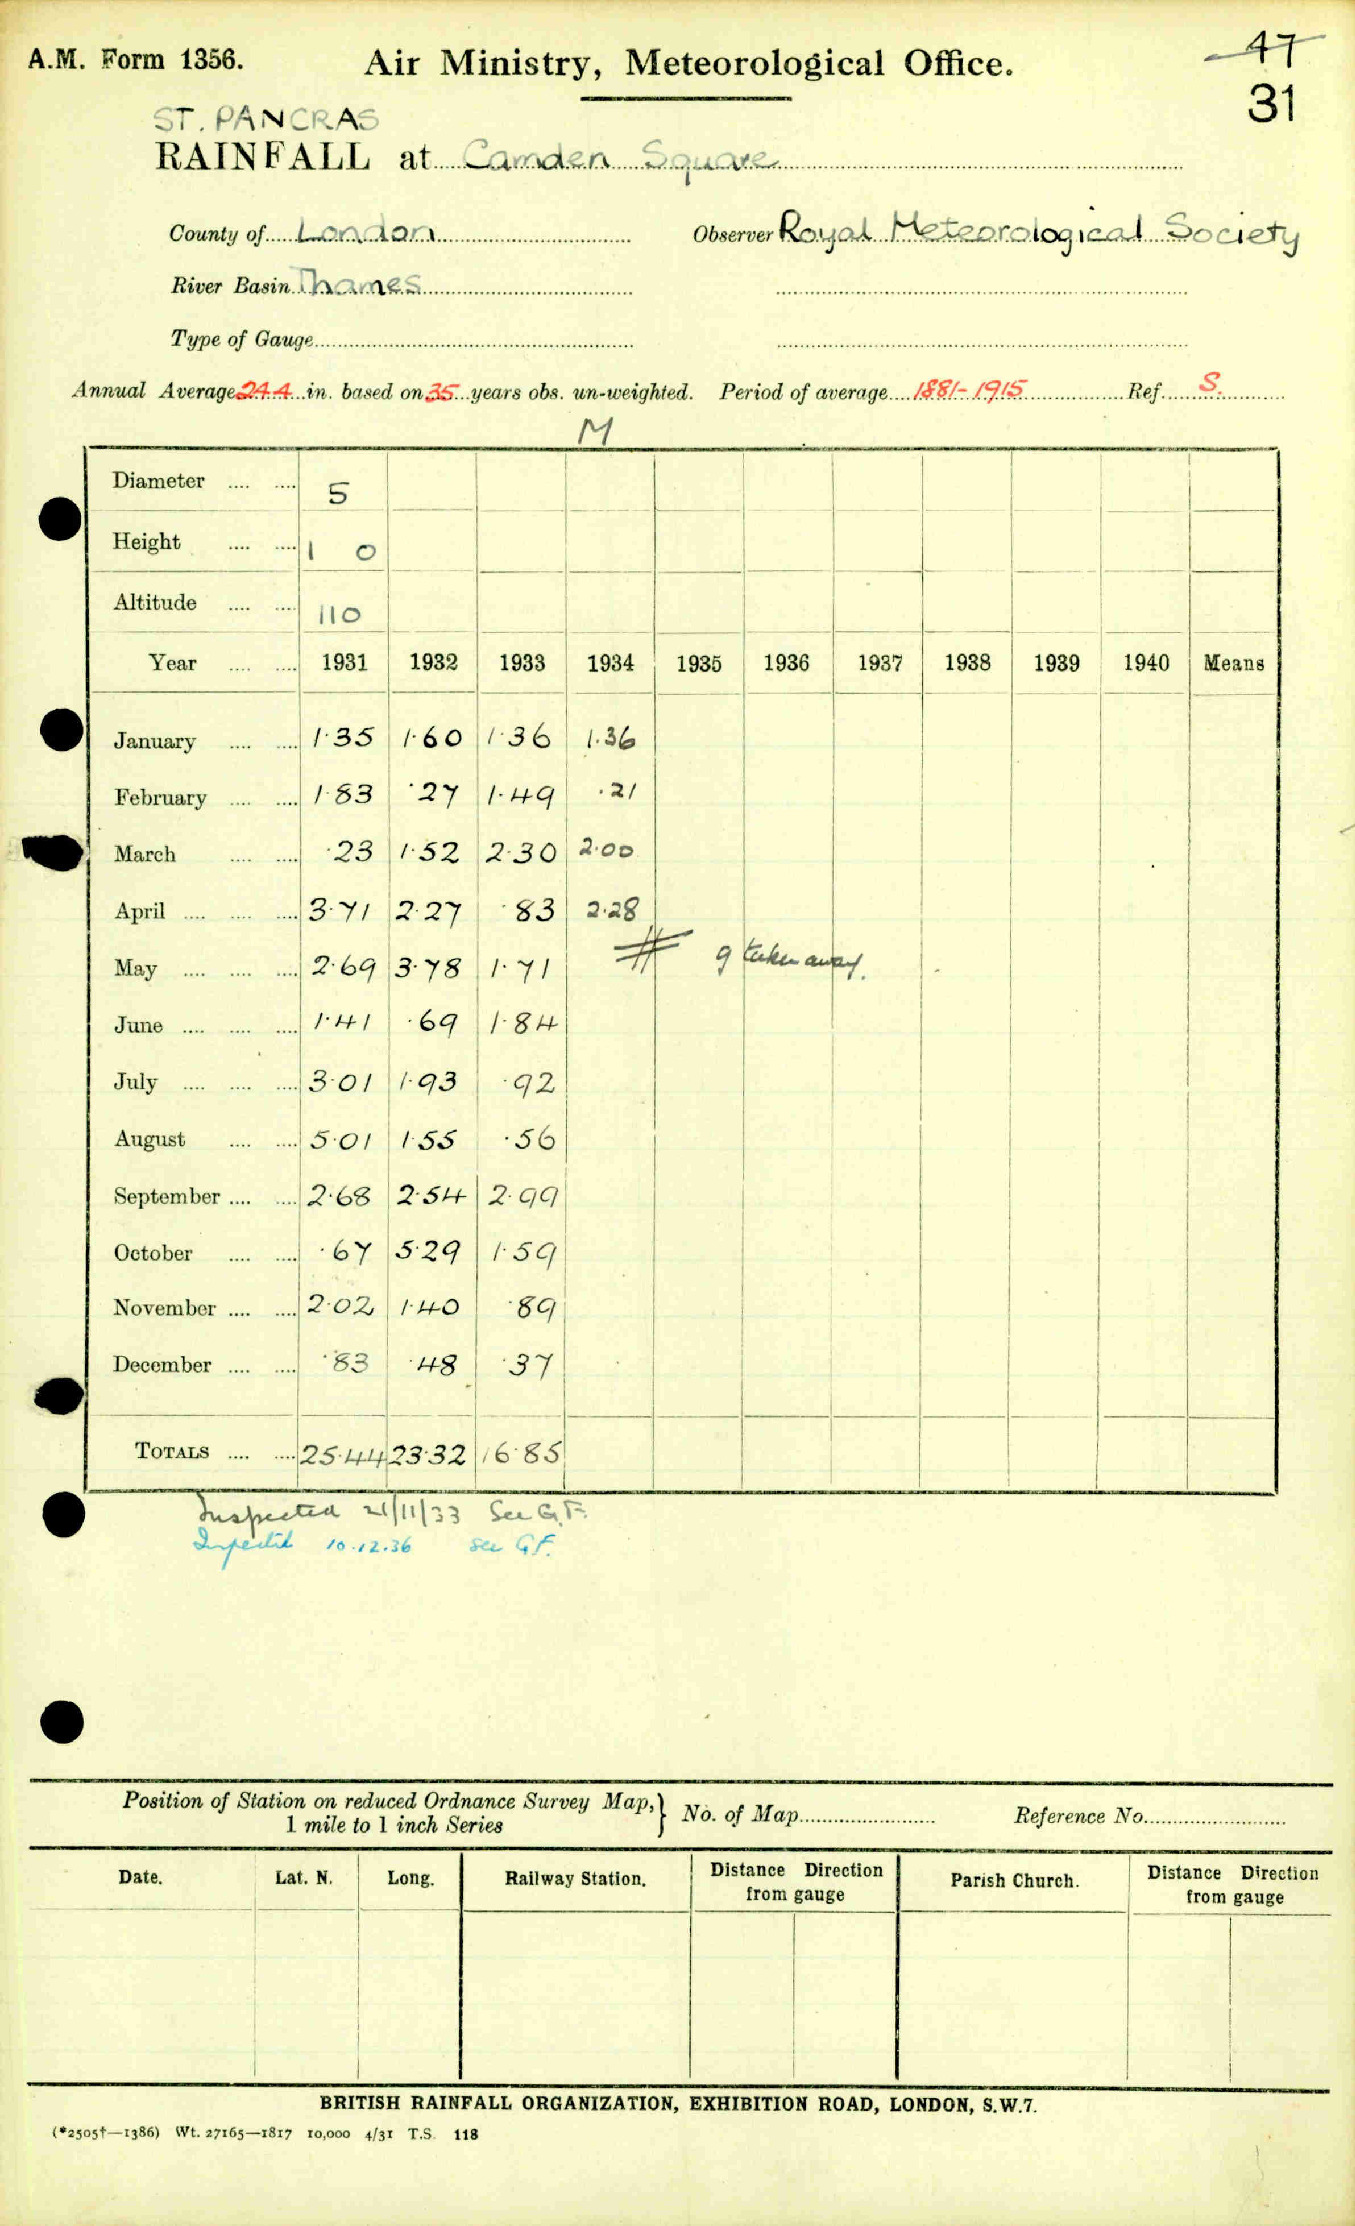 A.M. Form 1356.
Air Ministry, Meteorological Office.
47
31
ST. PANCRAS
RAINFALL at Camden Square
County of London
Observer Royal Meteorological Society
River Basin Thames
Type of Gauge
Annual Average 24.4 in. based on 35 years obs. un-weighted. Period of average 1881-1915 Ref. S.
M
Diameter 5
Height 1 0
Altitude 110
Year 1931 1932 1933 1934 1935 1936 1937 1938 1939 1940 Means
January 1.35 1.60 1.36 1.36
February 1.83 .27 1.49 .21
March .23 1.52 2.30 2.00
April 3.71 2.27 .83 2.28
May 2.69 3.78 1.71 g taken away.
June 1.41 .69 1.84
July 3.01 1.93 .92
August 5.01 1.55 .56
September 2.68 2.54 2.99
October .67 5.29 1.59
November 2.02 1.40 .89
December .83 .48 .37
TOTALS 25.44 23.32 16.85
Inspected 21/11/33 See G.F.
Inspected 10.12.36 see G.F.
Position of Station on reduced Ordnance Survey Map, } No. of Map Reference No.
1 mile to 1 inch Series
Date. Lat. N. Long. Railway Station. Distance Direction from gauge Parish Church. Distance Direction from gauge
BRITISH RAINFALL ORGANIZATION, EXHIBITION ROAD, LONDON, S.W.7.
(*2505†—1386) Wt. 27165—1817 10,000 4/31 T.S. 118